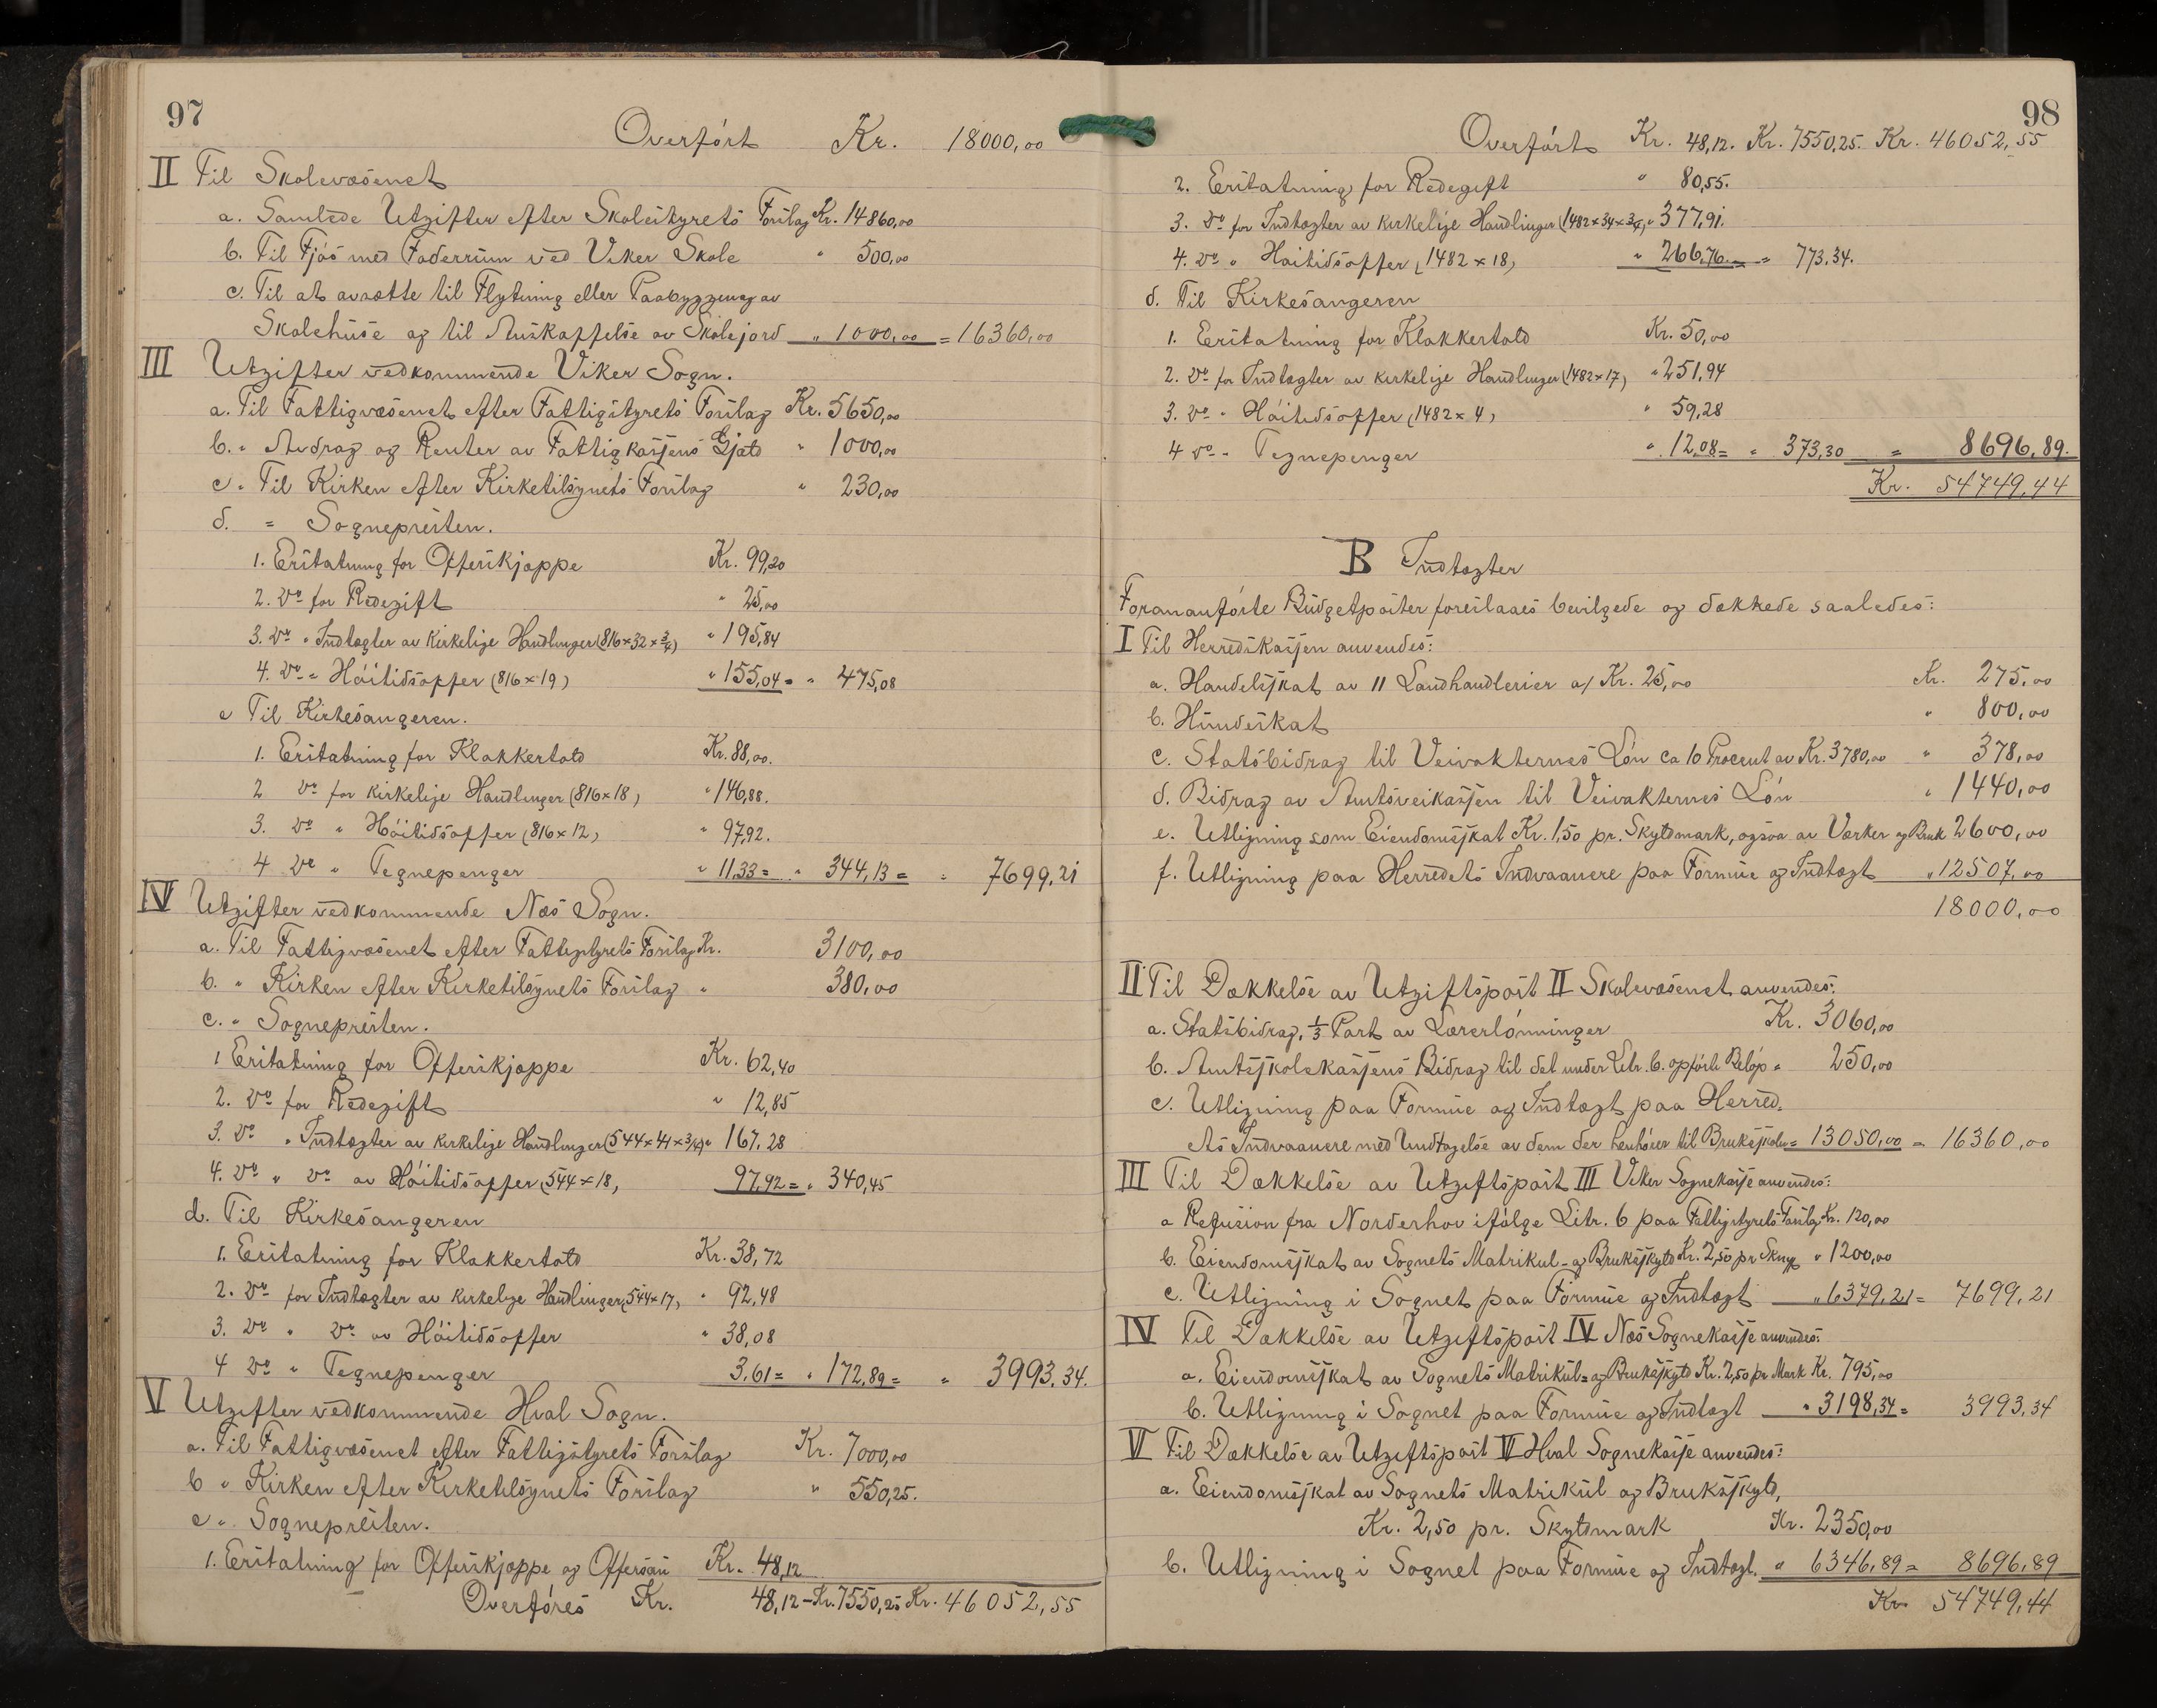 97
Overført Kr. 18000,00
II Til Skolevæsenet
a. Samlede Utgifter efter Skolestyrets Forslag Kr. 14860,00
b. Til Fjøs med Foderrum ved Viker Skole " 500,00
c. Til at avsætte til Flytning eller Paabygging av
Skolehuse og til Anskaffelse av Skolejord " 1000,00 = 16360,00
III Utgifter vedkommende Viker Sogn.
a. Til Fattigvæsenet efter Fattigstyrets Forslag Kr. 5650,00
b. " Avdrag og Renter av Fattigkassens Gjæld " 1000,00
c. Til Kirken efter Kirketilsynets Forslag " 230,00
d. = Sognepresten.
1. Erstatning for Offerskjæppe Kr. 99,20
2. Do for Redegift " 25,00
3. Do " Indtægter av kirkelige Handlinger (816×32×3/4) " 195,84
4. Do " Høitidsoffer (816×19) " 155,04 = " 475,08
e Til Kirkesangeren.
1. Erstatning for Klokkertold Kr. 88,00.
2 Do for kirkelige Handlinger (816×18) " 146,88.
3. Do " Høitidsoffer (816×12) " 97,92.
4 Do " Tegnepenger " 11,33 = " 344,13 = " 7699,21
IV Utgifter vedkommende Næs Sogn.
a. Til Fattigvæsenet efter Fattigstyrets Forslag Kr. 3100,00
b. " Kirken efter Kirketilsynets Forslag " 380,00
c. " Sognepresten.
1 Erstatning for Offerskjæppe Kr. 62,40
2. Do for Redegift " 12,85
3. Do " Indtægter av kirkelige Handlinger (544×41×3/4) " 167,28
4. Do " Do av Høitidsoffer (544×18) 97,92 = " 340,45
d. Til Kirkesangeren
1. Erstatning for Klokkertold Kr. 38,72
2. Do for Indtægter av kirkelige Handlinger (544×17) " 92,48
3. Do " Do av Høitidsoffer " 38,08
4 Do " Tegnepenger 3,61 = " 172,89 = " 3993,34.
V Utgifter vedkommende Hval Sogn.
a. Til Fattigvæsenet efter Fattigstyrets Forslag Kr. 7000,00
b " Kirken efter Kirketilsynets Forslag " 550,25.
c " Sognepresten.
1. Erstatning for Offerskjæppe og Offersau Kr. 48,12
Overføres Kr. 48,12 - Kr. 7550,25 Kr. 46052,55
98
Overført Kr. 48,12. Kr. 7550,25. Kr. 46052,55
2. Erstatning for Redegift " 80,55.
3. Do for Indtægter av kirkelige Handlinger (1482×34×3/4) " 377,91.
4. Do " Høitidsoffer (1482×18) " 266,76. = " 773,34.
d. Til Kirkesangeren
1. Erstatning for Klokkertold Kr. 50,00
2. Do for Indtægter av kirkelige Handlinger (1482×17) " 251,94
3. Do " Høitidsoffer (1482×4) " 59,28
4 Do " Tegnepenger " 12,08 = " 373,30 = 8696,89.
Kr. 54749,44
B Indtægter
Forananførte Budgetposter foreslaaes bevilgede og dækkede saaledes:
I Til Herredskassen anvendes:
a. Handelsskat av 11 Landhandlerier a/ Kr. 25,00 Kr. 275,00
b. Hundeskat " 800,00
c. Statsbidrag til Veivokternes Løn ca 10 Procent av Kr. 3780,00 " 378,00
d. Bidrag av Amtsveikassen til Veivokternes Løn " 1440,00
e. Utligning som Eiendomsskat Kr. 1,50 pr. Skyldmark, ogsaa av Verker og Bruk 2600,00
f. Utligning paa Herredets Indvaanere paa Formue og Indtægt " 12507,00
18000,00
II Til Dækkelse av Utgiftspost II Skolevæsenet anvendes:
a. Statsbidrag, 1/3 Part av Lærerlønninger Kr. 3060,00
b. Amtsskolekassens Bidrag til det under Litr. b. opførte Beløp " 250,00
c. Utligning paa Formue og Indtægt paa Herred-
ets Indvaanere med Undtagelse av dem der henhører til Bruksskoler = 13050,00 = 16360,00
III Til Dækkelse av Utgiftspost III Viker Sognekasse anvendes:
a Refusion fra Norderhov ifølge Litr. 6 paa Fattigstyrets Forslag Kr. 120,00
b. Eiendomsskat av Sognets Matrikul- og Bruksskyld Kr. 2,50 pr Skm " 1200,00
c. Utligning i Sognet paa Formue og Indtægt " 6379,21 = 7699,21
IV Til Dækkelse av Utgiftspost IV Næs Sognekasse anvendes:
a. Eiendomsskat av Sognets Matrikul= og Bruksskyld Kr. 2,50 pr Mark Kr. 795,00
b. Utligning i Sognet paa Formue og Indtægt " 3198,34 = 3993,34
V Til Dækkelse av Utgiftspost V Hval Sognekasse anvendes:
a. Eiendomsskat av Sognets Matrikul og Bruksskyld,
Kr. 2,50 pr. Skyldmark Kr. 2350,00
b. Utligning i Sognet paa Formue og Indtægt. " 6346,89 = 8696,89
Kr 54749,44